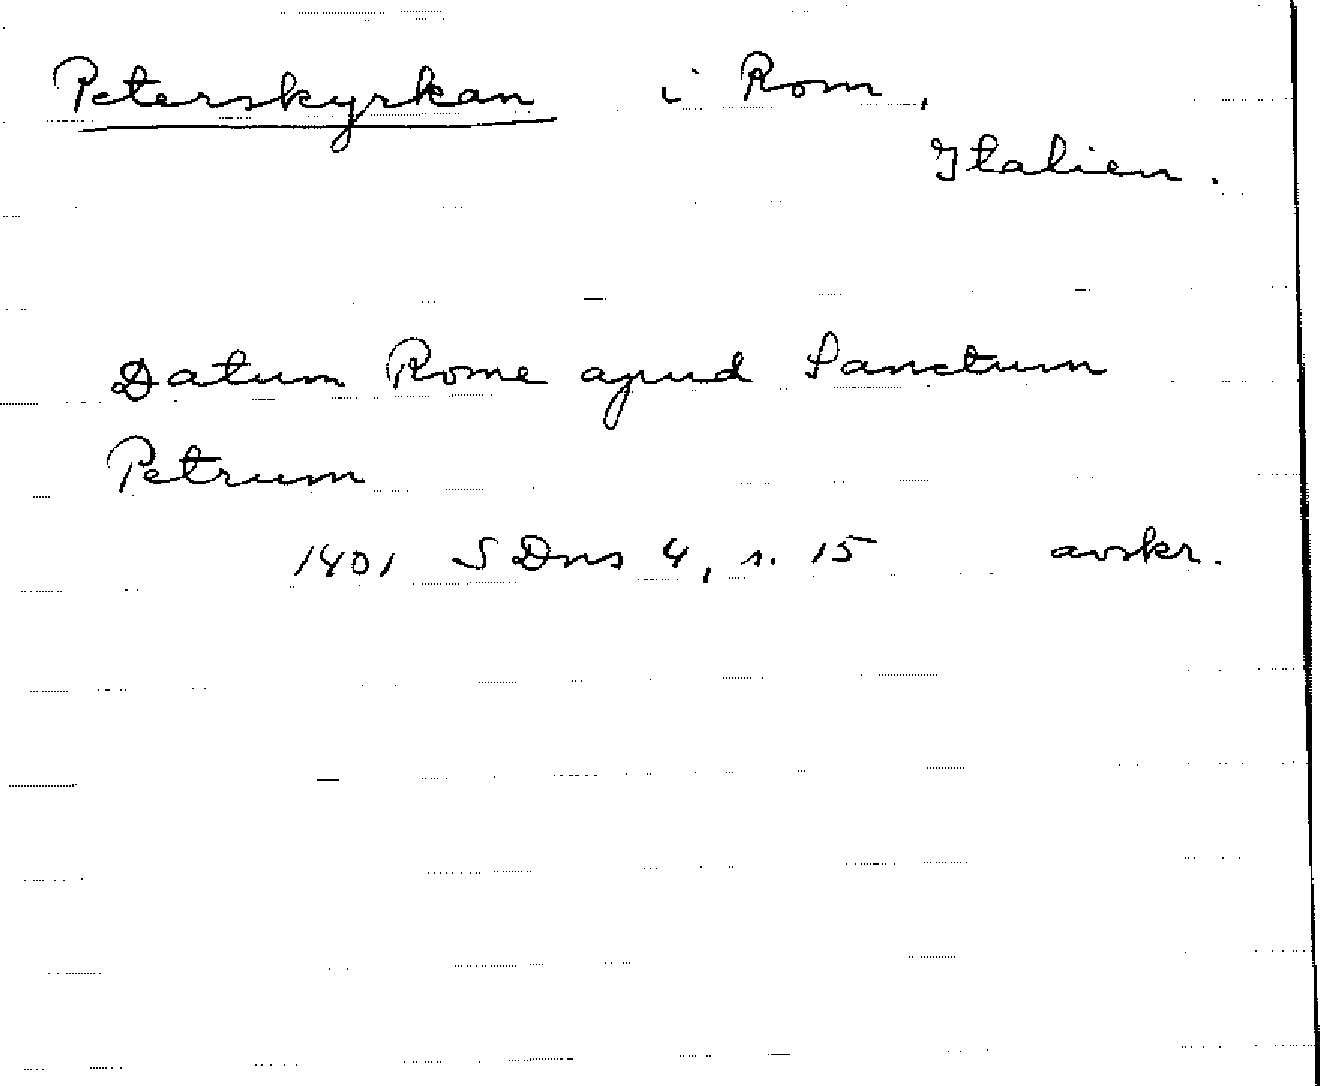 Peterskyrkan i Rom,
Italien.
Datum Rome apud Sanctum
Petrum
1401 SDns 4, s. 15 avskr.